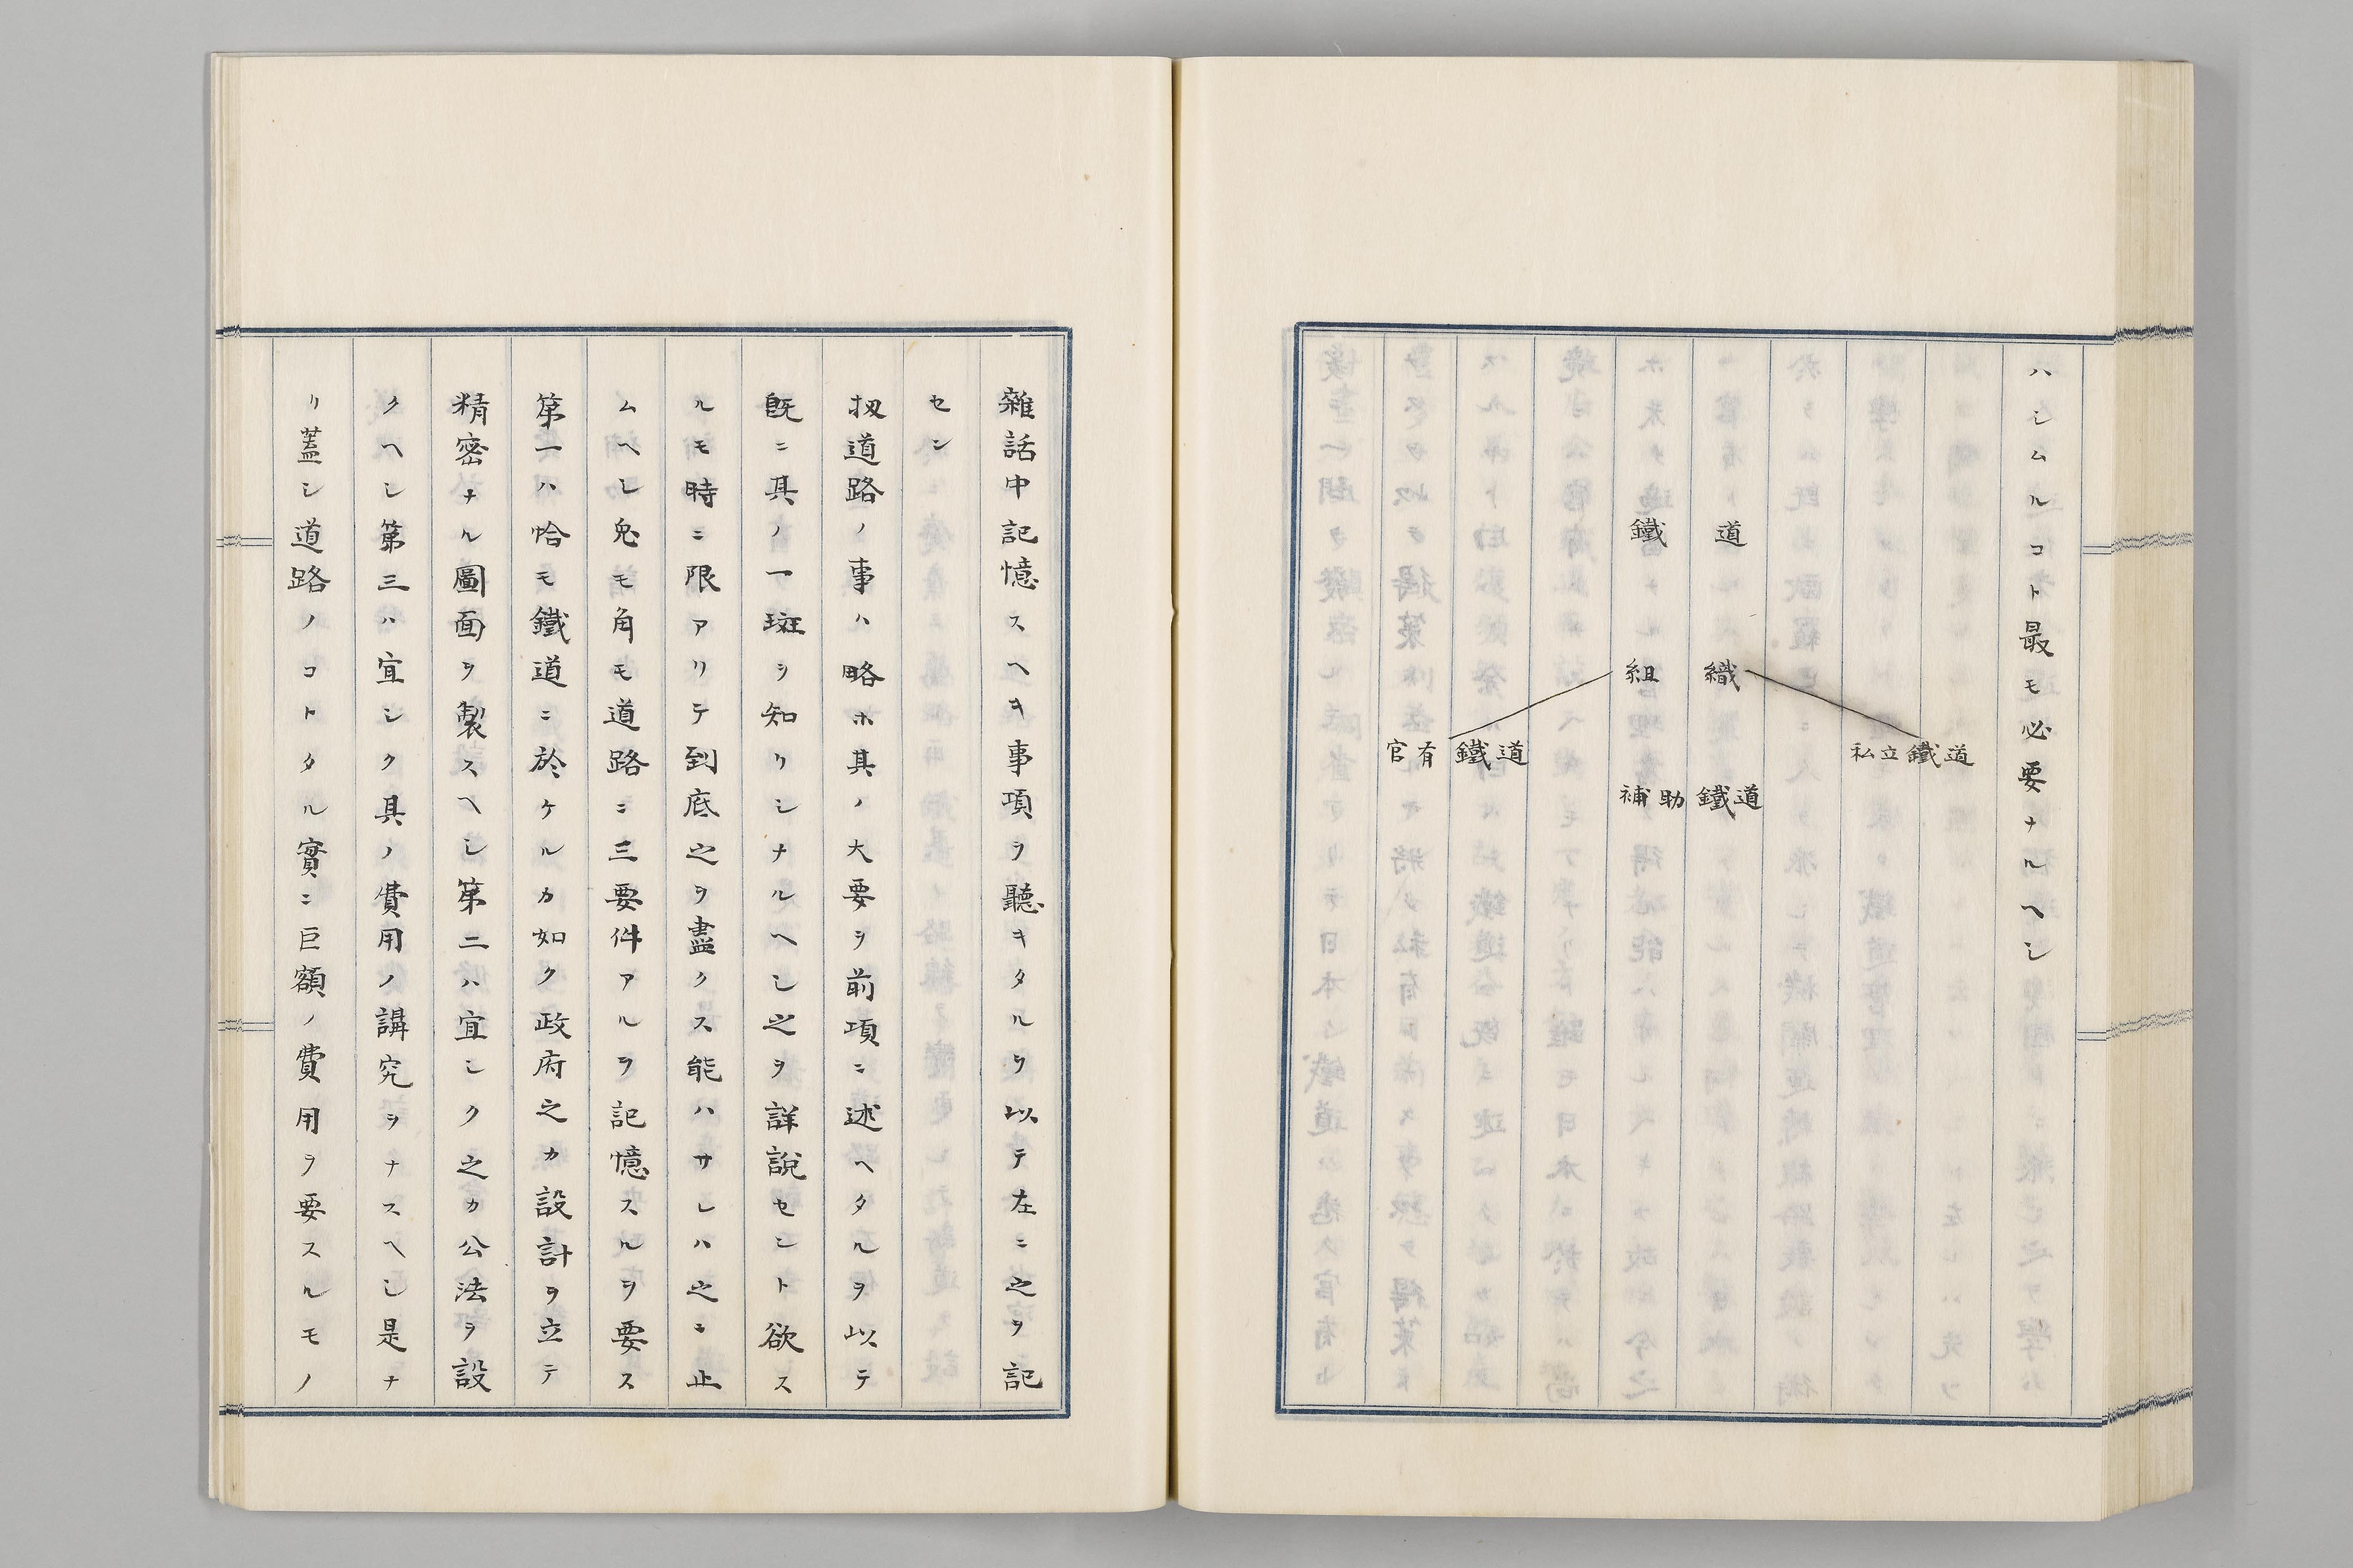 ハシムルコト最モ必要ナルヘシ
鐵道
組織
官有鐵道
補助鐵道
私立鐵道
雜話中記憶スヘキ事項ヲ聽キタルヲ以テ左ニ之ヲ記
セン
扨道路ノ事ハ略ホ其ノ大要ヲ前項ニ述ヘタルヲ以テ
既ニ其ノ一斑ヲ知リシナルヘシ之ヲ詳説セント欲ス
ルモ時ニ限アリテ到底之ヲ盡クス能ハサレハ之ニ止
ムヘシ兎モ角モ道路ニ三要件アルヲ記憶スルヲ要ス
第一ハ恰モ鐵道ニ於ケルカ如ク政府之カ設計ヲ立テ
精密ナル圖面ヲ製スヘシ第二ハ宜シク之カ公法ヲ設
クヘシ第三ハ宜シク具ノ費用ノ講究ヲナスヘシ是ナ
リ蓋シ道路ノコトタル實ニ巨額ノ費用ヲ要スルモノ